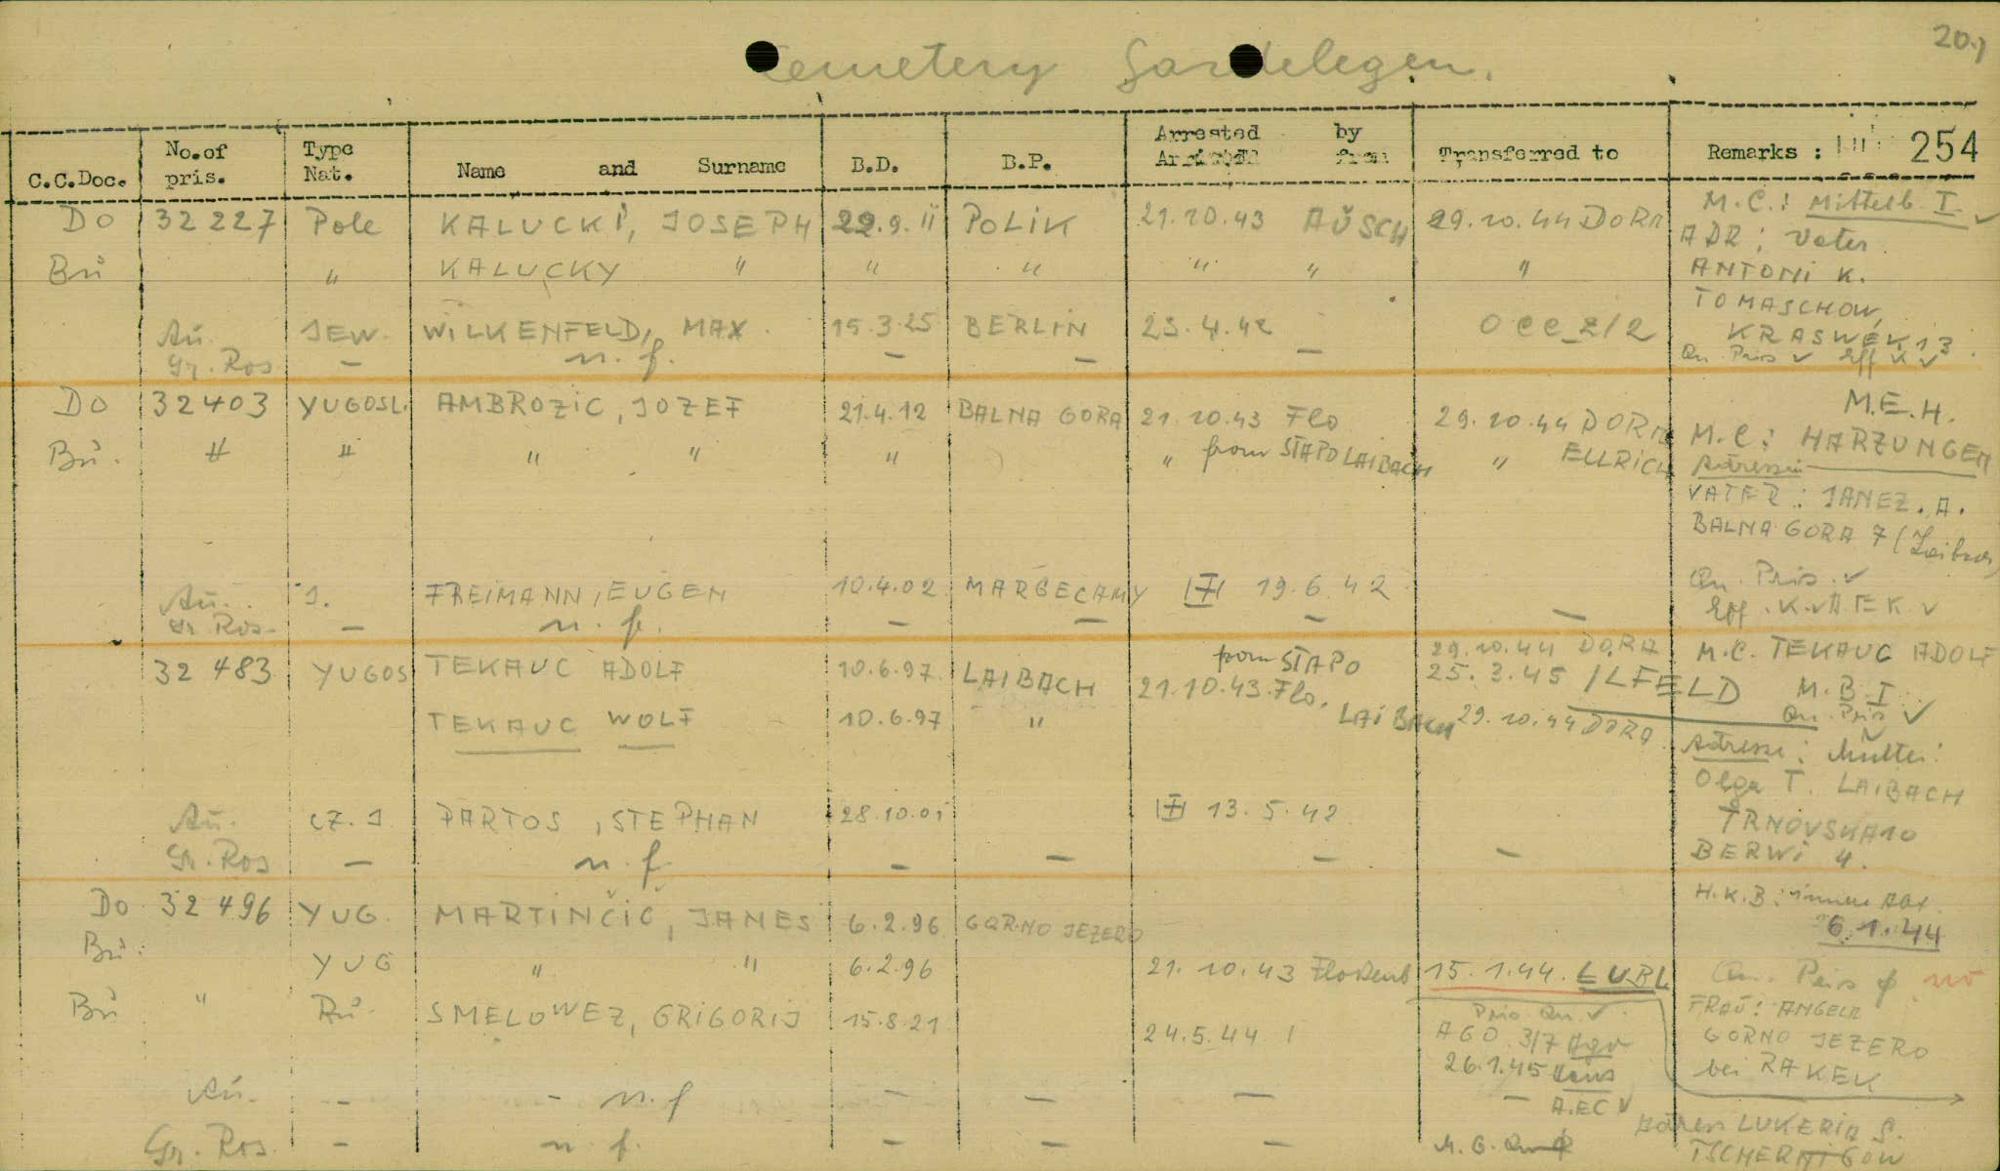 20.)
Cemetery Gardelegen.
C.C.Doc. No.of pris. Type Nat. Name and Surname B.D. B.P. Arrested by Transferred to Remarks : 254
Do 32 227 Pole KALUCKI, JOSEPH 22.9.11 POLIK 21.10.43 AŬSCH 29.10.44 DORA M.C.: Mittelb. I ✓
ADR : Vater
Bŭ " KALUCKY " " " " " " ANTONI K.
TOMASCHOW,
Aŭ. JEW. WILKENFELD, MAX. 15.3.25 BERLIN 23.4.42 – Occ 2/2 KRASWEK 13.
Gr. Ros – n. f. – – – Qu. Pris ✓ Eff K ✓
Do 32403 YUGOSL. AMBROZIC, JOZEF 21.4.12 BALNA GORA 21.10.43 Flo 29.10.44 DORA M.E.H.
M.C: HARZUNGEN
Bŭ. " " " " " " from STAPO LAIBACH " ELLRICH Adresse
VATER : JANEZ. A.
BALNA GORA 7 (Laibach)
Aŭ. J. FREIMANN, EUGEN 10.4.02 MARGECANY 19.6.42 Qu. Pris. ✓
Gr. Ros – n. f. – – – – Eff. K. ✓ A E K ✓
32 483 YUGOS TEKAUC ADOLF 10.6.97. LAIBACH from STAPO 21.10.43. Flo. LAIBACH 29.10.44 DORA M.C. TEKAUC ADOLF
25.3.45 ILFELD M.B I
Qu. Pris ✓
TEKAUC WOLF 10.6.97 " 29.10.44 DORA
Adresse : Mutter:
Olga T. LAIBACH
Aŭ. cz. J PARTOS, STEPHAN 28.10.01 13.5.42 TRNOVSKA 10
Gr. Ros – n. f. – – – – BERWI 4.
Do 32 496 YUG. MARTINČIČ, JANES 6.2.96 GORNO JEZERO H.K.B: innere Abt.
6.1.44
Bŭ. YUG " " 6.2.96 21.10.43 Flossenb 15.1.44. LUBL Qu. Pris
Bŭ " Rŭ. SMELOWEZ, GRIGORIJ 15.8.21 24.5.44 Pris Qu. ✓ FRAŬ: ANGELA
AGO 3/7 Ago GORNO JEZERO
26.1.45 bei RAKEK
Aŭ. – – n.f – – – – A.EC ✓
Adress LUKERIA S.
Gr. Ros – n. f. – – – M.G. Qu TSCHERNIGOW